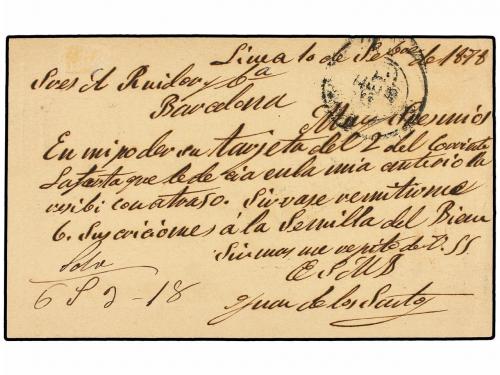 Lima 10 de 1878
Sres A Ruidor y Cª
Barcelona
Muy Sres mios
En mi poder su tarjeta del 2 del Corriente
La tarta que le decia en la mia anterior la
recibi con atraso. Sirvase remitirme
6. Suscriciones á la Semilla del Bien
Sin mas me repito de V. SS.
Juan de los Santos
6 S 2 - 18